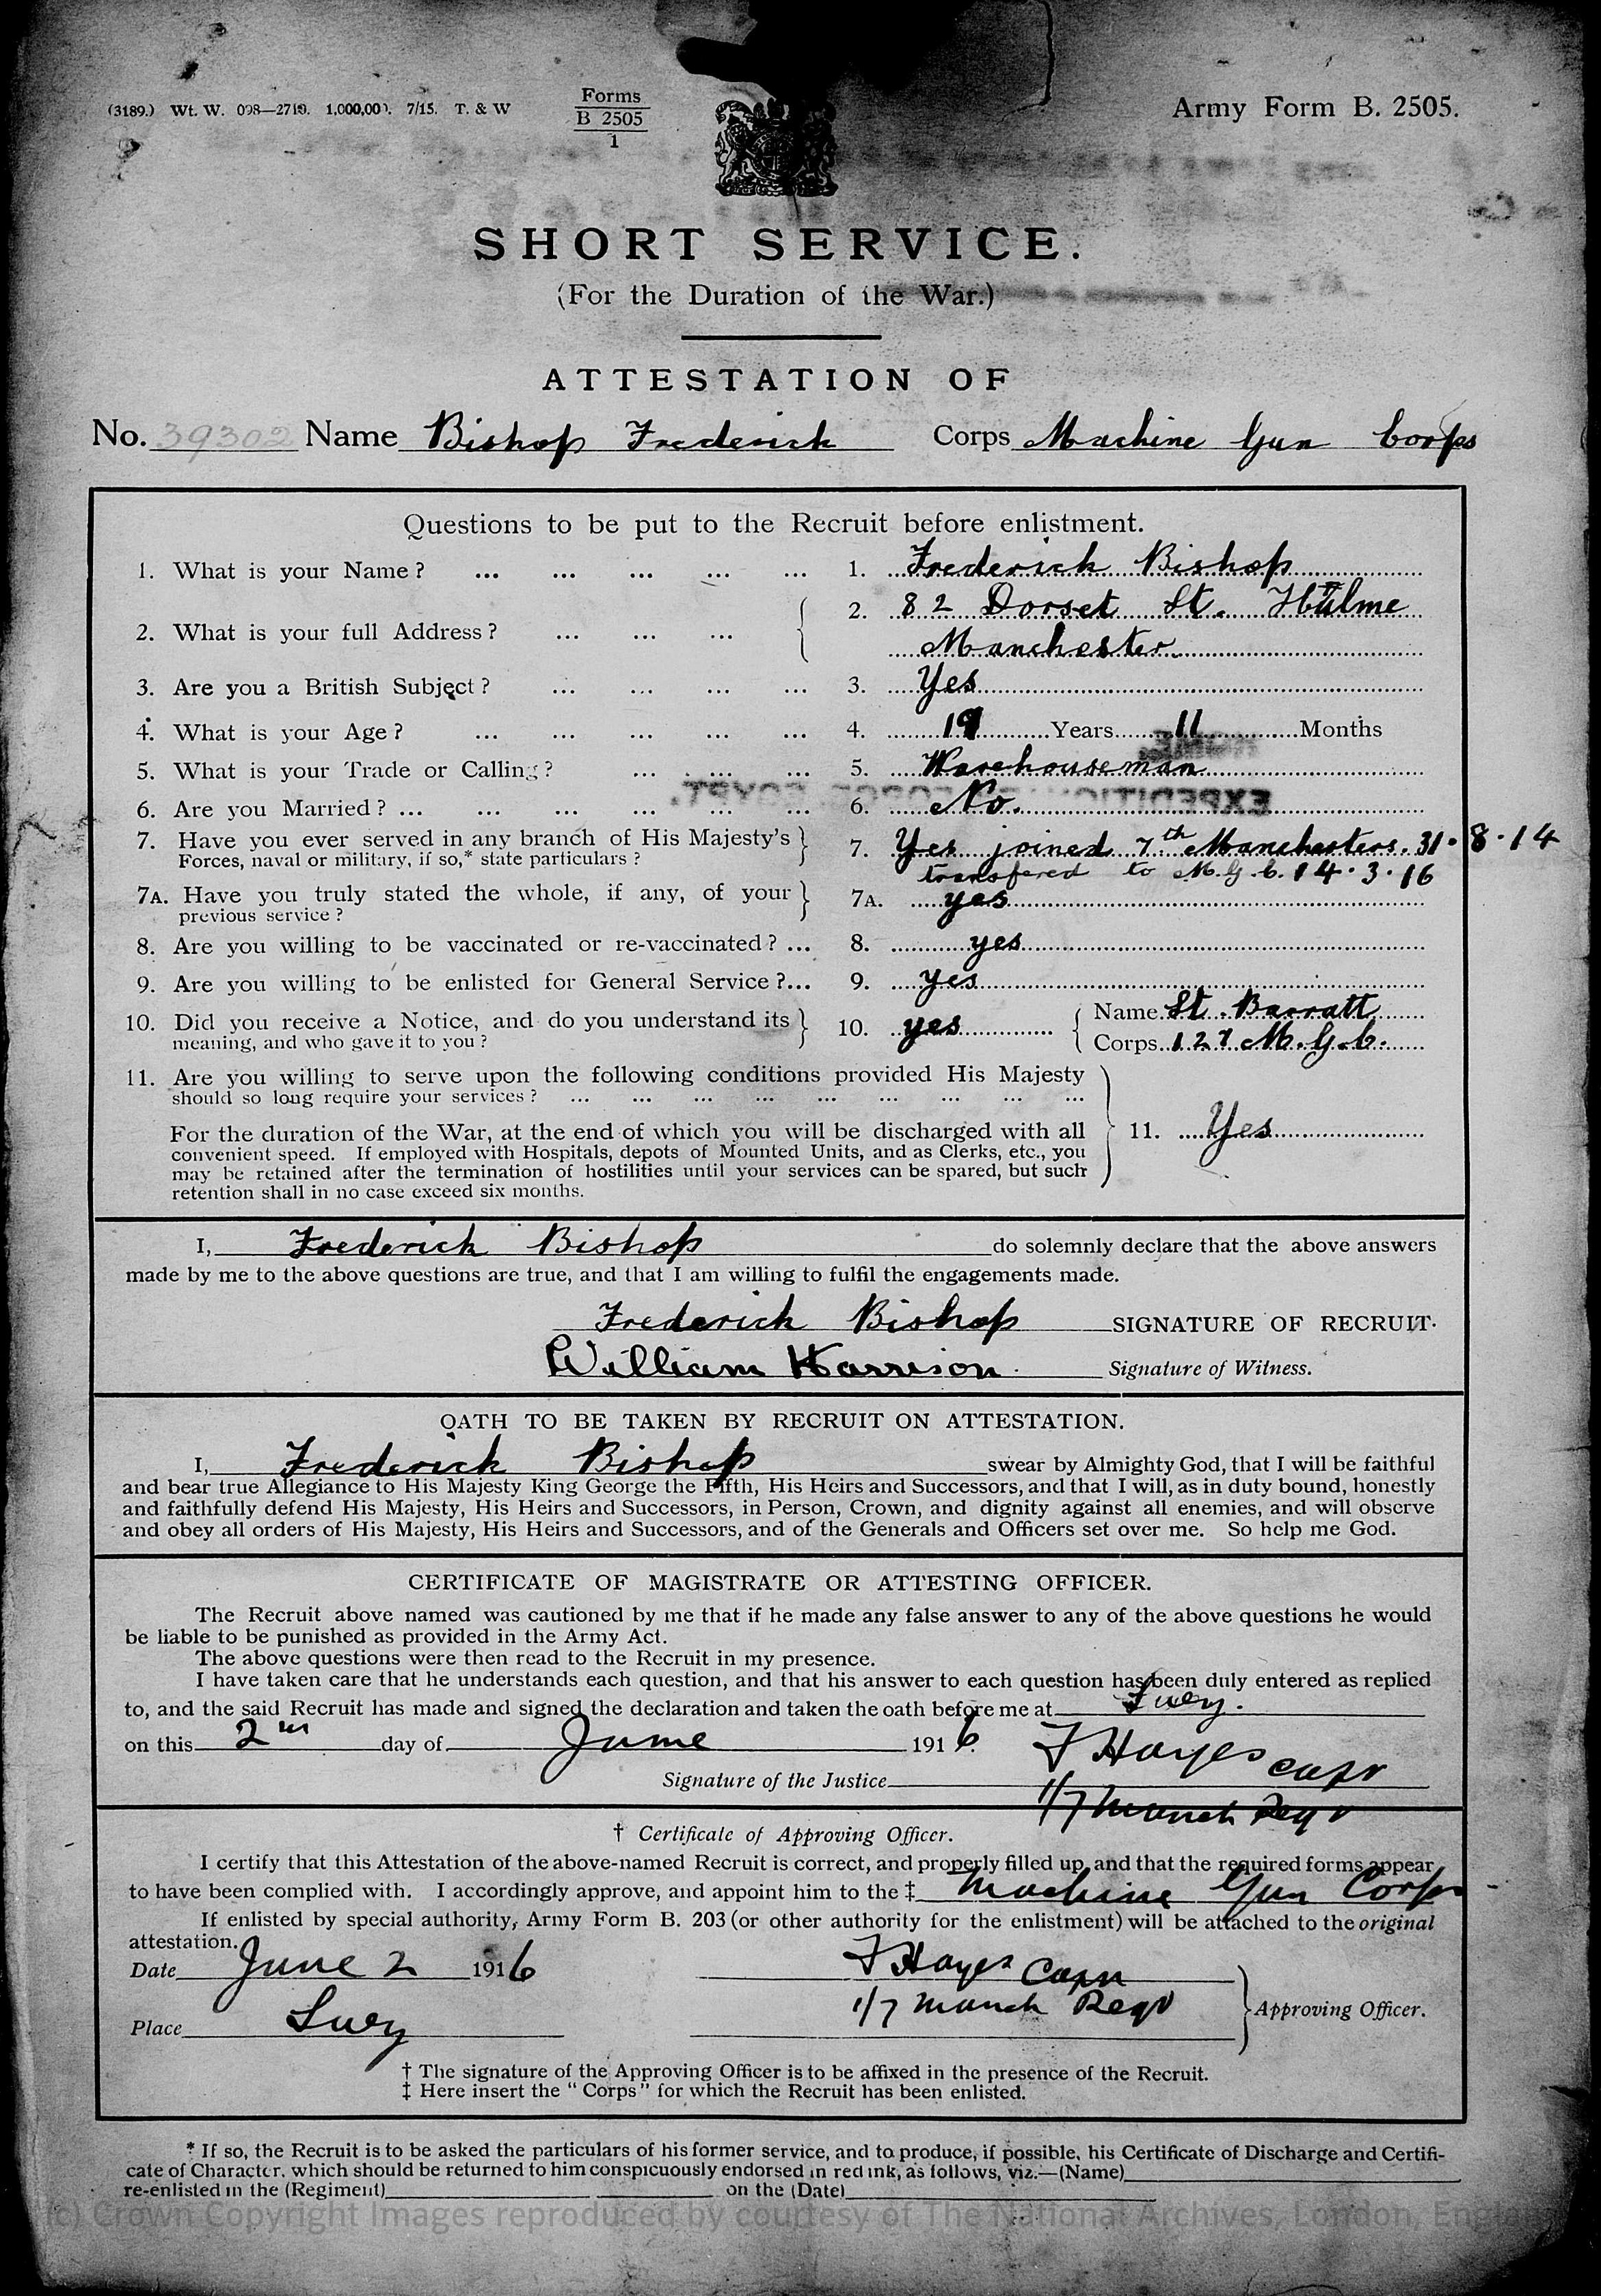 (3189.) Wt. W. 098—2719. 1,000,000. 7/15. T. & W
Forms
B 2505
1
Army Form B. 2505.
SHORT SERVICE.
(For the Duration of the War.)
ATTESTATION OF
No. 39302 Name Bishop Frederick Corps Machine Gun Corps
Questions to be put to the Recruit before enlistment.
1. What is your Name? ... ... ... ... ... 1. Frederick Bishop
2. What is your full Address? ... ... ... 2. 82 Dorset St. Hulme
Manchester
3. Are you a British Subject? ... ... ... ... 3. Yes
4. What is your Age? ... ... ... ... ... 4. 19 Years 11 Months
HOME.
5. What is your Trade or Calling? ... ... ... 5. Warehouseman
EXPEDITION FORCE EGYPT.
6. Are you Married? ... ... ... ... ... ... 6. No.
7. Have you ever served in any branch of His Majesty's 7. Yes joined 7th Manchesters. 31.8.14
Forces, naval or military, if so,* state particulars? transfered to M.G.C. 14.3.16
7A. Have you truly stated the whole, if any, of your 7A. yes
previous service?
8. Are you willing to be vaccinated or re-vaccinated? ... 8. yes
9. Are you willing to be enlisted for General Service?... 9. yes
10. Did you receive a Notice, and do you understand its 10. yes Name Lt. Barratt
meaning, and who gave it to you? Corps 127 M.G.C.
11. Are you willing to serve upon the following conditions provided His Majesty
should so long require your services? ... ... ... ... ... ... ... ...
For the duration of the War, at the end of which you will be discharged with all 11. Yes
convenient speed. If employed with Hospitals, depots of Mounted Units, and as Clerks, etc., you
may be retained after the termination of hostilities until your services can be spared, but such
retention shall in no case exceed six months.
I, Frederick Bishop do solemnly declare that the above answers
made by me to the above questions are true, and that I am willing to fulfil the engagements made.
Frederick Bishop SIGNATURE OF RECRUIT.
William Harrison. Signature of Witness.
OATH TO BE TAKEN BY RECRUIT ON ATTESTATION.
I, Frederick Bishop swear by Almighty God, that I will be faithful
and bear true Allegiance to His Majesty King George the Fifth, His Heirs and Successors, and that I will, as in duty bound, honestly
and faithfully defend His Majesty, His Heirs and Successors, in Person, Crown, and dignity against all enemies, and will observe
and obey all orders of His Majesty, His Heirs and Successors, and of the Generals and Officers set over me. So help me God.
CERTIFICATE OF MAGISTRATE OR ATTESTING OFFICER.
The Recruit above named was cautioned by me that if he made any false answer to any of the above questions he would
be liable to be punished as provided in the Army Act.
The above questions were then read to the Recruit in my presence.
I have taken care that he understands each question, and that his answer to each question has been duly entered as replied
to, and the said Recruit has made and signed the declaration and taken the oath before me at Suez.
on this 2nd day of June 1916.
Signature of the Justice F Hayes Capt
1/7 Manch Regt
† Certificate of Approving Officer.
I certify that this Attestation of the above-named Recruit is correct, and properly filled up, and that the required forms appear
to have been complied with. I accordingly approve, and appoint him to the ‡ Machine Gun Corps
If enlisted by special authority, Army Form B. 203 (or other authority for the enlistment) will be attached to the original
attestation.
Date June 2 1916 F Hayes Capt
1/7 Manch Regt Approving Officer.
Place Suez
† The signature of the Approving Officer is to be affixed in the presence of the Recruit.
‡ Here insert the "Corps" for which the Recruit has been enlisted.
* If so, the Recruit is to be asked the particulars of his former service, and to produce, if possible, his Certificate of Discharge and Certifi-
cate of Character, which should be returned to him conspicuously endorsed in red ink, as follows, viz.—(Name)
re-enlisted in the (Regiment) on the (Date)
(c) Crown Copyright Images reproduced by courtesy of The National Archives, London, England